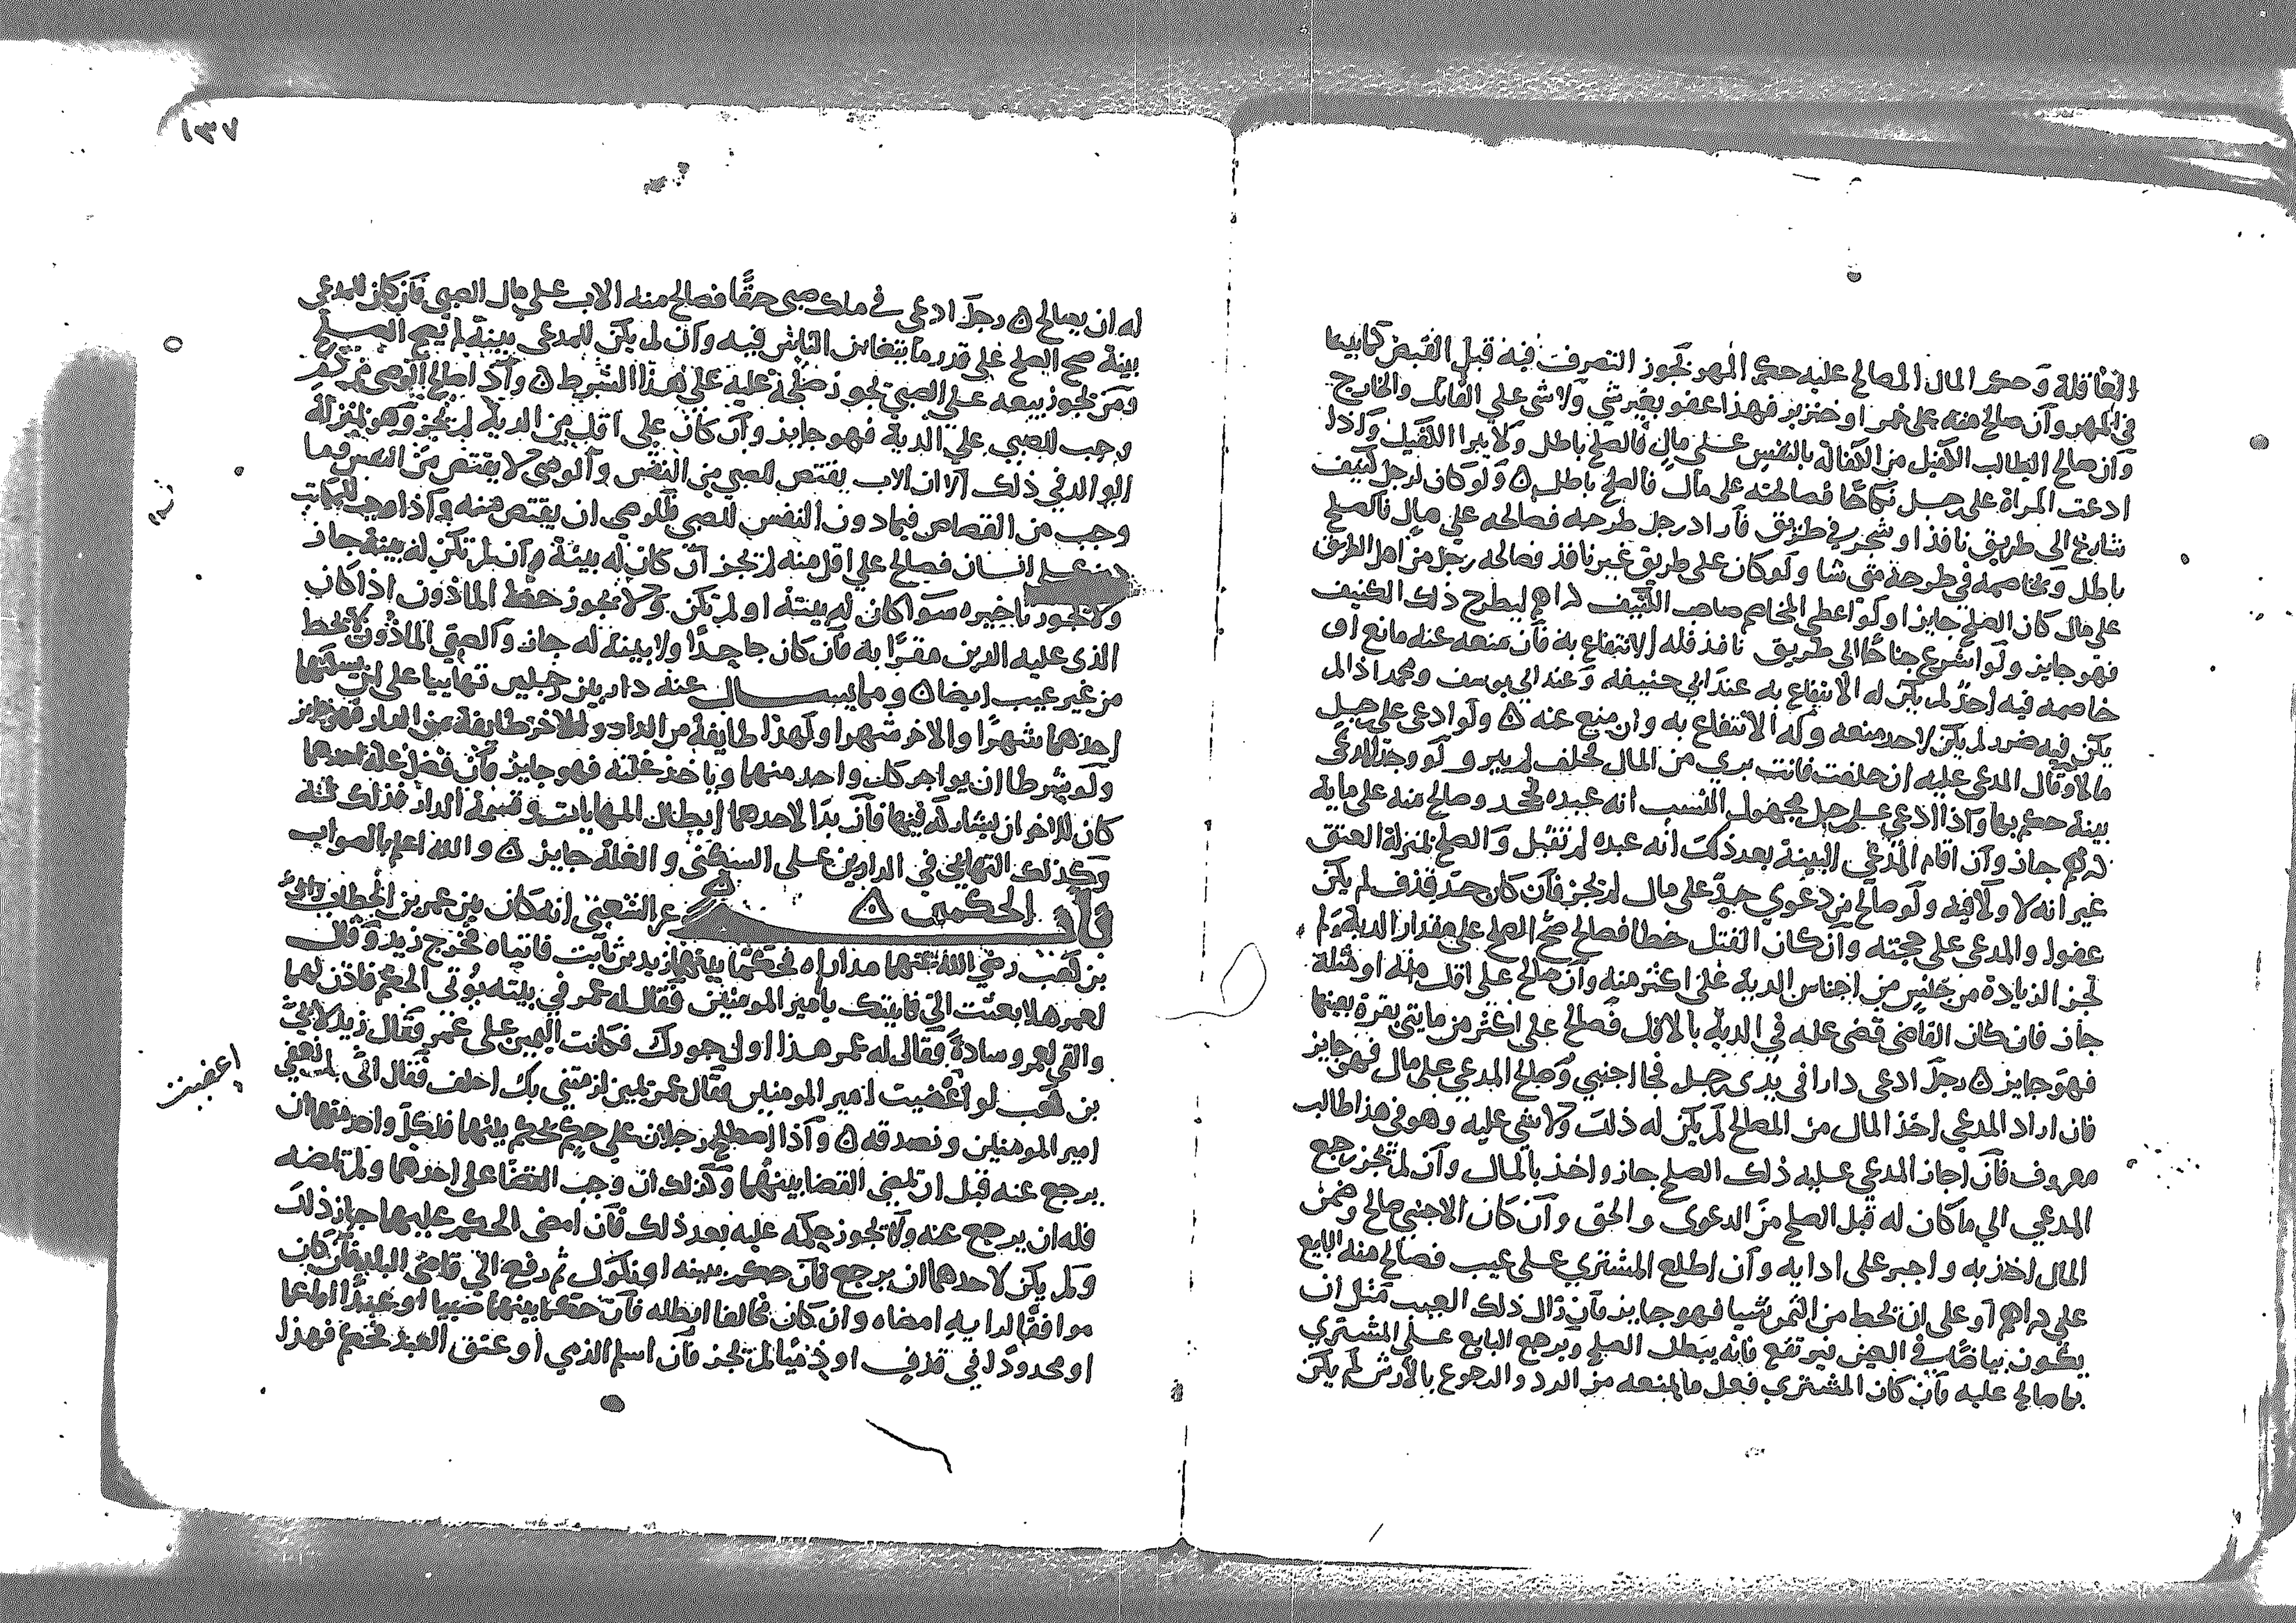 العاقلة وحكم المال المصالح عليه حكم المهر يجوز التصرف فيه قبل القبض كما بينا
في المهر وان صالح منه على خمر او خنزير فهذا عفو بغير شي ولا شي على القاتل والجارح
وان صالح الطالب الكفيل من الكفالة بالنفس على مال فالصلح باطل ولا يبرا الكفيل واذا
ادعت المراة على رجل نكاحا فصالحته على مال فالصلح باطل ه ولو كان لرجل كنيف
شارع الى طريق نافذ او شجر في طريق فاراد رجل طرحه فصالحه على مال فالصلح
باطل ويخاصمه في طرحه متى شا ولو كان على طريق غير نافذ فصالحه رجل من اهل الطريق
على مال كان الصلح جايزا ولو اعطى المخاصم صاحب الكنيف دراهم ليطرح ذلك الكنيف
فهو جايز ولو اشرع جناحا الى طريق نافذ فله الانتفاع به فان منعه عنه مانع او
خاصمه فيه احد لم يكن له الانتفاع به عند ابي حنيفه وعند ابي يوسف ومحمد اذا لم
يكن فيه ضرر لم يكن لاحد منعه وله الانتفاع به وان منع عنه ه ولو ادعى على رجل
مالا وقال المدعى عليه ان حلفت فانت بري من المال فحلف لم يبر ولو وجد المدعي
بينة حكم بها واذا ادعى على رجل مجهول النسب انه عبده فجحد وصالح منه على ماية
درهم جاز وان اقام المدعي البينة بعد ذلك انه عبده لم تقبل والصلح بمنزلة العتق
غير انه لا ولا فيه ولو صالح من دعوى حد على مال لم يجز فان كان حد قذف لم يكن
عفوا والمدعى على حجته وان كان القتل خطا فصالح صح الصلح على مقدار الدية ولم
تجز الزيادة من جنس من اجناس الدية على اكثر منه وان صالح على اقل منه او مثله
جاز فان كان القاضي قضى عليه في الدية بالابل فصالح على اكثر من مايتي بقرة بعينها
فهو جايز ه رجل ادعى دارا في يدي رجل فجا اجنبي وصالح المدعي على مال فهو جايز
فان اراد المدعي اخذ المال من المصالح لم يكن له ذلك ولا شي عليه وهو في هذا طالب
معروف فان اجاز المدعى عليه ذلك الصلح جاز واخذ بالمال وان لم يجز رجع
المدعي الى ما كان له قبل الصلح من الدعوى والحق وان كان الاجنبي صالح وضمن
المال اخذ به واجبر على ادايه وان اطلع المشتري على عيب فصالح منه البايع
على دراهم او على ان يحط من الثمن شيا فهو جايز فان زال ذلك العيب مثل ان
يكون بياضا في العين فيرتفع فانه يبطل الصلح ويرجع البايع على المشتري
بما صالح عليه فان كان المشتري فعل ما يمنعه من الرد والرجوع بالارش لم يكن
١٣٧
له ان يصالح ه رجل ادعى في ملك صبي حقا فصالح منه الاب على مال الصبي فان كان للمدعي
بينة صح الصلح على قدر ما يتغابن الناس فيه وان لم يكن للمدعي بينة لم يصح الصلح
ومن يجوز بيعه على الصبي يجوز صلحه عليه على هذا الشرط ه واذا صالح الوصي من دم
وجب للصبي على الدية فهو جايز وان كان على اقل من الدية لم يجز وهو بمنزلة
الوالد في ذلك الا ان الاب يقتص للصبي من النفس والوصي لا يقتص من النفس وما
وجب من القصاص فيما دون النفس للصبي فللوصي ان يقتص منه واذا وجب للمكاتب
دين على انسان فصالح على اقل منه لم يجز ان كان له بينة وان لم تكن له بينة جاز
ولا يجوز تاخيره سوا كان له بينة او لم تكن ولا يجوز حط الماذون اذا كان
الذي عليه الدين مقرا به فان كان جاحدا ولا بينة له جاز والصبي الماذون لا يحط
من غير عيب ايضا ه ومما يسال عنه دار بين رجلين تهاييا على ان يسكنها
احدهما شهرا والاخر شهرا ولهذا طايفة من الدار وللاخر طايفة من الدار فهو جايز
ولو شرطا ان يواجر كل واحد منهما وياخذ غلته فهو جايز فان فضل غلة احدهما
كان للاخر ان يشاركه فيها فان بدا لاحدهما ابطال المهايات وقسمة الدار فذلك له
وكذلك التهايي في الدارين على السكنى والغلة جايز ه والله اعلم بالصواب
باب الحكمين ه عن الشعبي انه كان بين عمر بن الخطاب وابي
بن كعب رضي الله عنهما مداراة فحكما بينهما زيد بن ثابت فاتياه فخرج زيد وقال
لعمر هلا بعثت الي فاتيتك يا امير المومنين فقال له عمر في بيته يوتى الحكم فاذن لهما
والقى لعمر وسادة فقال له عمر هذا اول جورك فكانت اليمين على عمر فقال زيد لابي
بن كعب لو اعفيت امير المومنين فقال عمر يمين لزمتني بل احلف فقال ابي بل نعفي
امير المومنين ونصدقه ه واذا اصطلح رجلان على حكم يحكم بينهما فلكل واحد منهما ان
يرجع عنه قبل ان يمضي القضا بينهما وكذلك ان وجب القضا على احدهما ولم يمضه
فله ان يرجع عنه ولا يجوز حكمه عليه بعد ذلك فان امضى الحكم عليهما جاز ذلك
ولم يكن لاحدهما ان يرجع فان حكم ببينه او نكول ثم رفع الى قاضي البلد فان كان
موافقا لرايه امضاه وان كان مخالفا ابطله فان حكما بينهما صبيا او عبدا او اعمى
او محدودا في قذف او ذميا لم يجز فان اسلم الذمي او عتق العبد فحكم فهذا
اعفيت